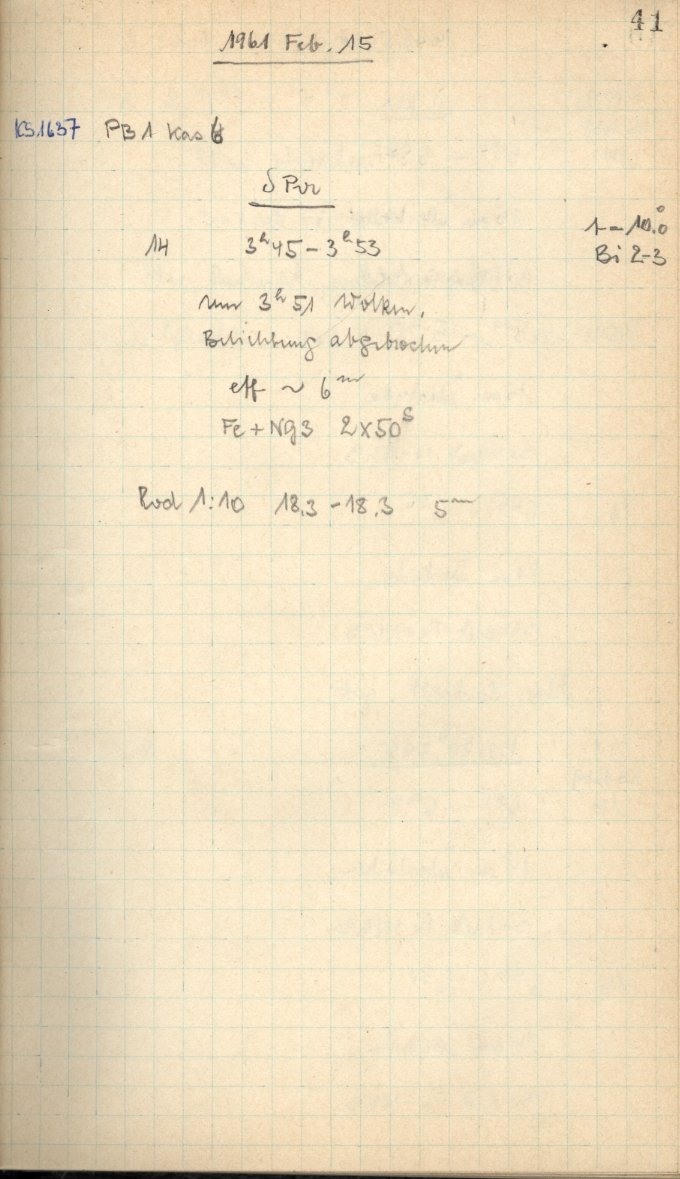 41
1961 Feb. 15
KS1637 PB1 Kas 6
δ Per
14 3ʰ45 – 3ʰ53
t – 10.°0
Bi 2-3
um 3ʰ51 Wolken.
Belichtung abgebrochen
eff ~ 6ᵐ
Fe + Ng3 2x50ˢ
Rod 1:10 18.3 – 18.3 5ᵐ